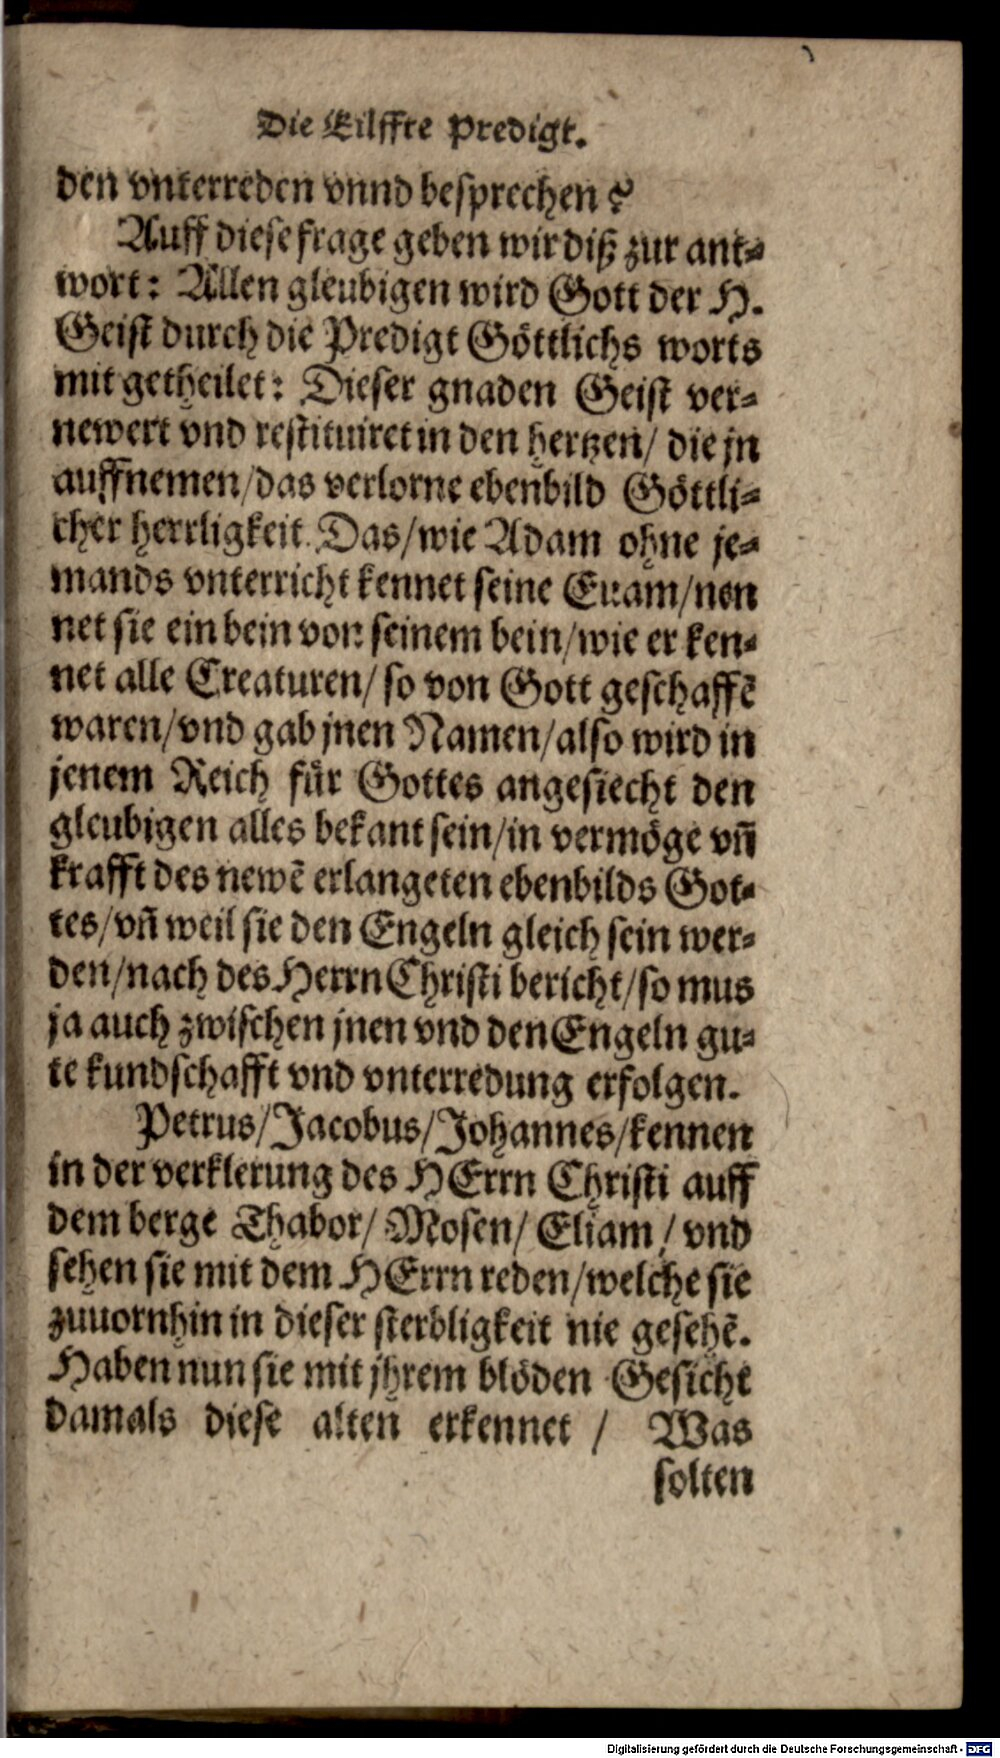 Die Eilffte Predigt.
den vnterreden vnnd besprechen?
Auff diese frage geben wir diß zur ant⸗
wort: Allen gleubigen wird Gott der H.
Geist durch die Predigt Göttlichs worts
mit getheilet: Dieser gnaden Geist ver⸗
newert vnd restituiret in den hertzen/ die jn
auffnemen/das verlorne ebenbild Göttli⸗
cher herrligkeit. Das/wie Adam ohne je⸗
mands vnterricht kennet seine Euam/nen
net sie ein bein von seinem bein/wie er ken⸗
net alle Creaturen/ so von Gott geschaffẽ
waren/vnd gab jnen Namen/also wird in
jenem Reich für Gottes angesiecht den
gleubigen alles bekant sein/in vermöge vñ
krafft des newẽ erlangeten ebenbilds Got⸗
tes/vñ weil sie den Engeln gleich sein wer⸗
den/nach des Herrn Christi bericht/so mus
ja auch zwischen jnen vnd den Engeln gu⸗
te kundschafft vnd vnterredung erfolgen.
Petrus/Jacobus/Johannes/kennen
in der verklerung des HErrn Christi auff
dem berge Thabor/ Mosen/ Eliam/ vnd
sehen sie mit dem HErrn reden/welche sie
zuuornhin in dieser sterbligkeit nie gesehẽ.
Haben nun sie mit jhrem blöden Gesicht
damals diese alten erkennet / Was
solten
Digitalisierung gefördert durch die Deutsche Forschungsgemeinschaft - DFG